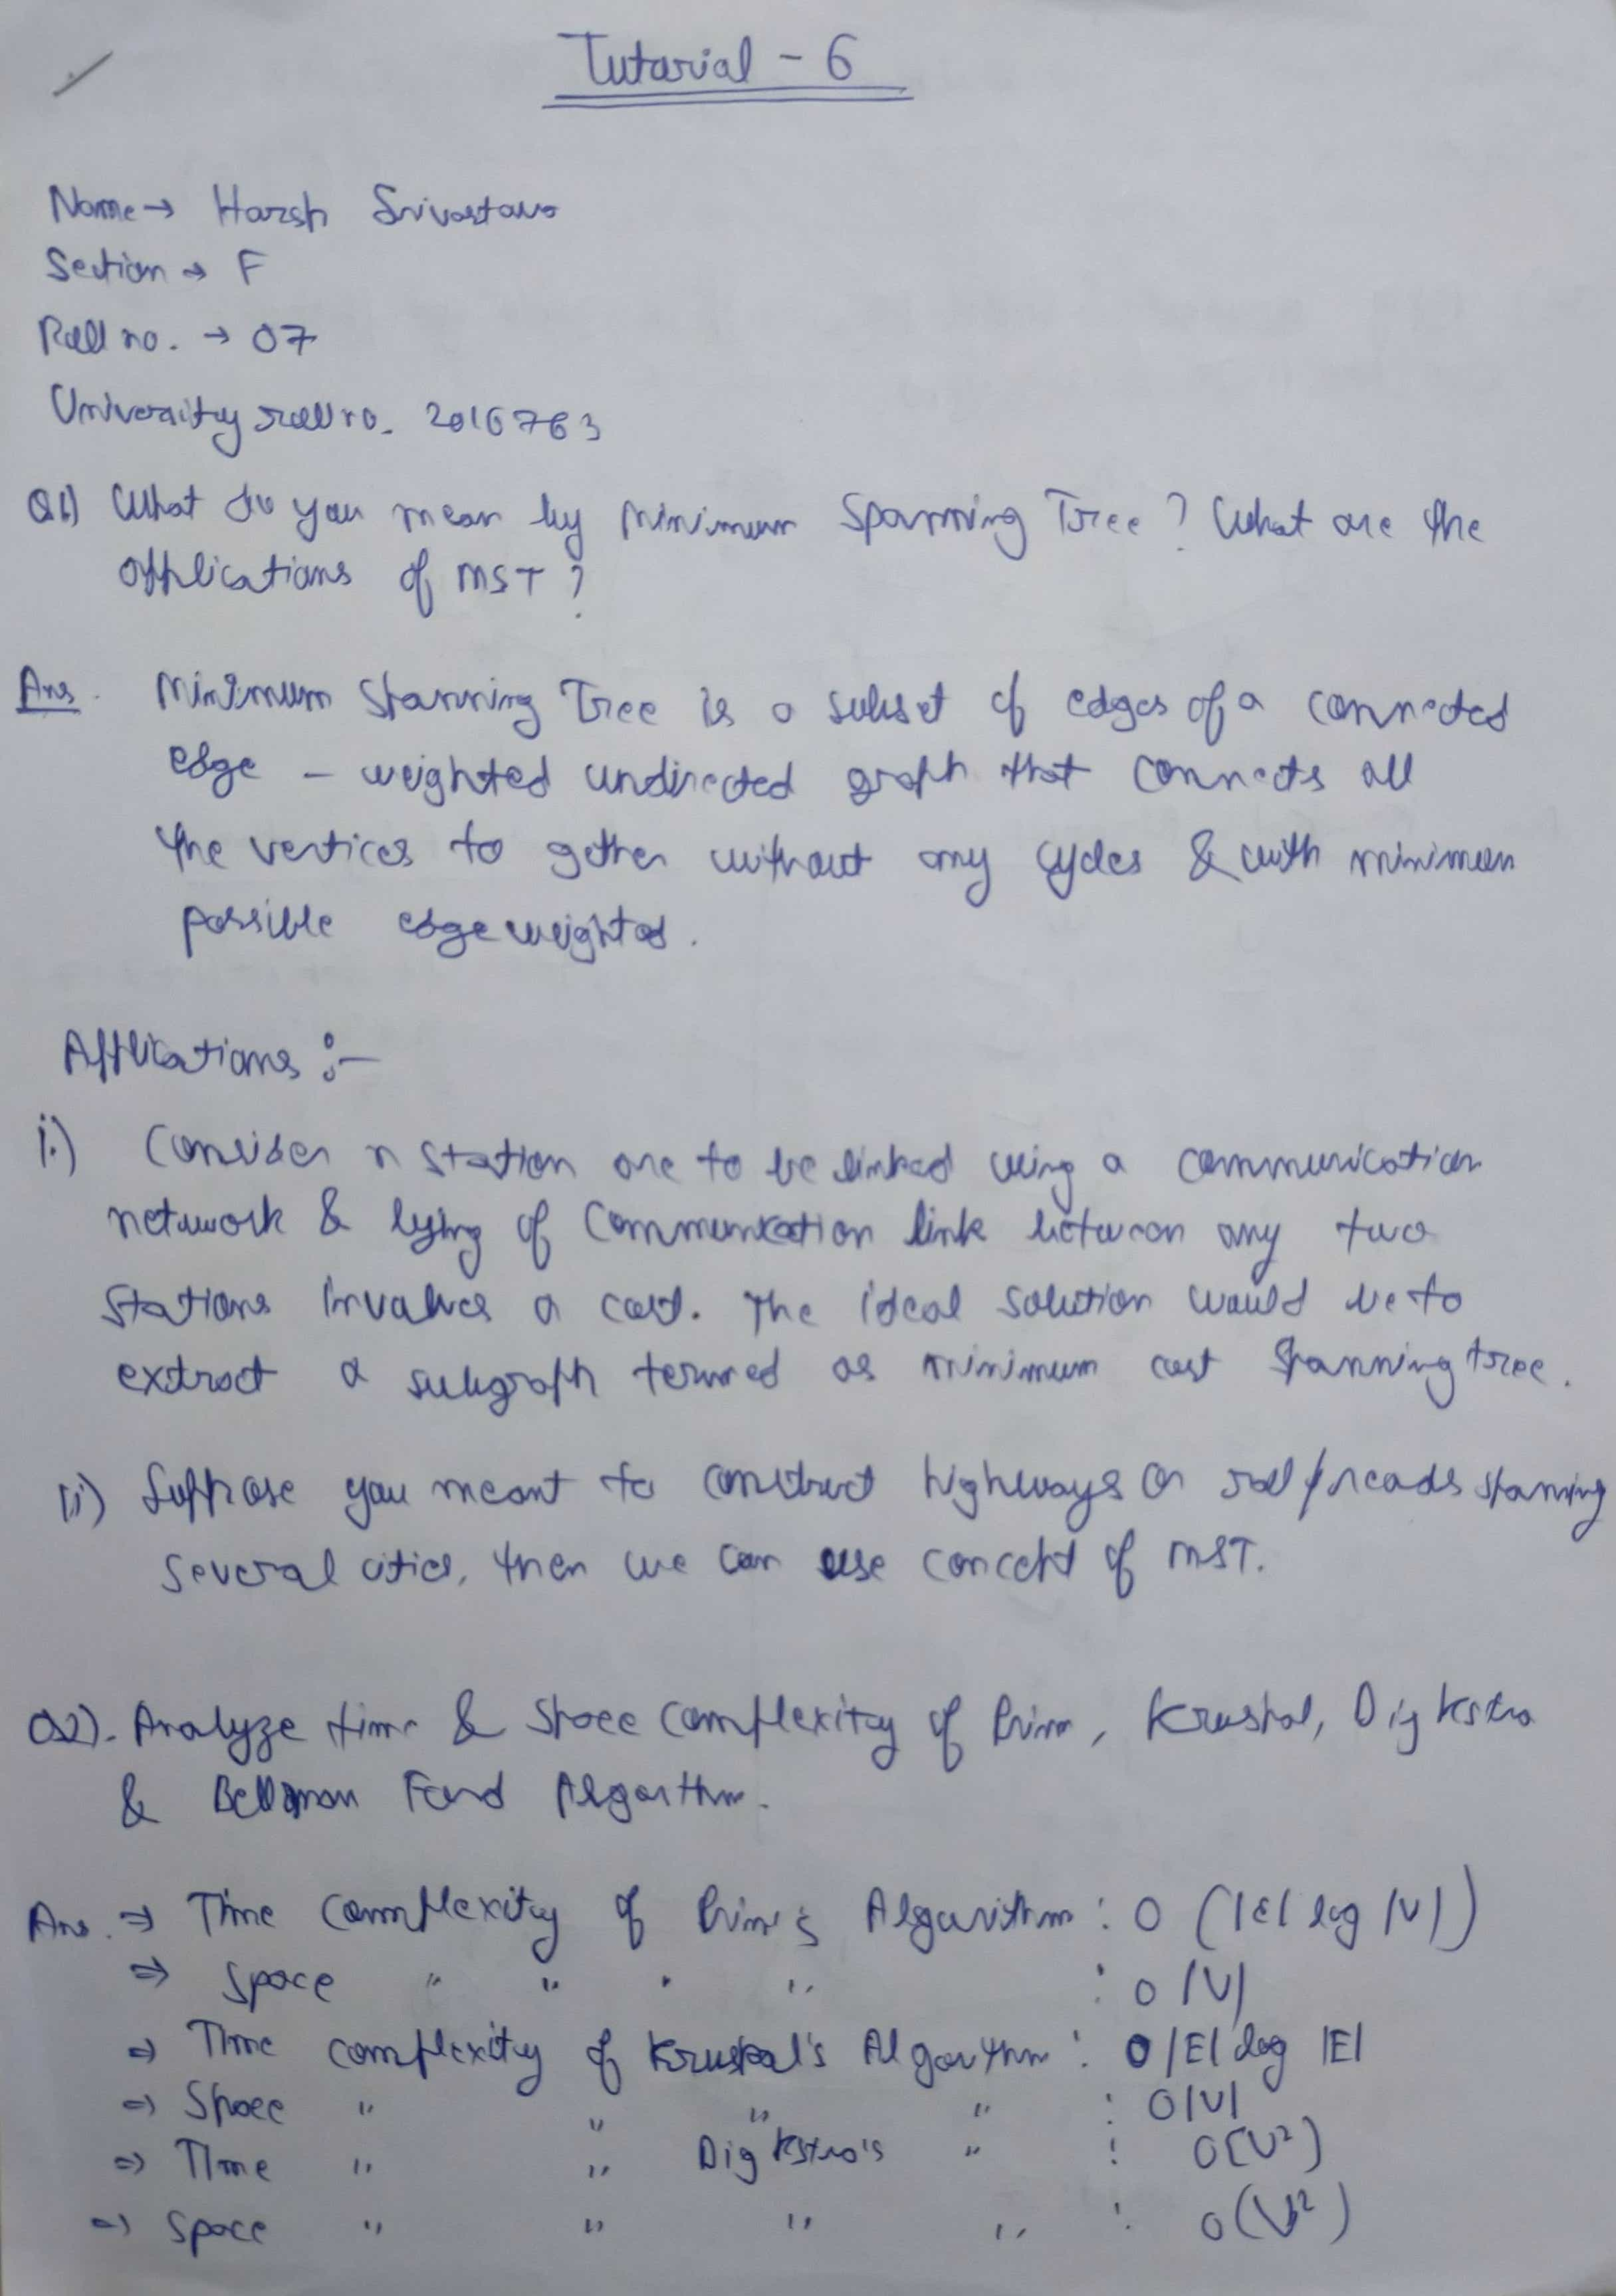 Tutorial - 6
Name → Harsh Srivastava
Section → F
Roll no. → 07
University roll no. 2016763
Q1) What do you mean by Minimum Spanning Tree? What are the
applications of MST?
Ans. Minimum Spanning Tree is a subset of edges of a connected
edge - weighted undirected graph that connects all
the vertices to gether without any cycles & with minimum
possible edge weighted.
Applications :-
i.) Consider n station are to be linked using a communication
network & lying of communication link between any two
stations involves a cost. The ideal solution would be to
extract a subgraph termed as minimum cost spanning tree.
ii) Suppose you meant to construct highways or railroads spanning
several cities, then we can use concept of MST.
Q2). Analyze time & space complexity of Prim, Kruskal, Digkstra
& Bellman Ford Algorithm.
Ans. ⇒ Time complexity of Prim's Algorithm : O (|E| log |V|)
⇒ Space " " " " : O |V|
⇒ Time complexity of Kruskal's Algorithm : O |E| log |E|
⇒ Space " " " " : O |V|
⇒ Time " " Digkstra's " : O(V²)
⇒ Space " " " " : O(V²)